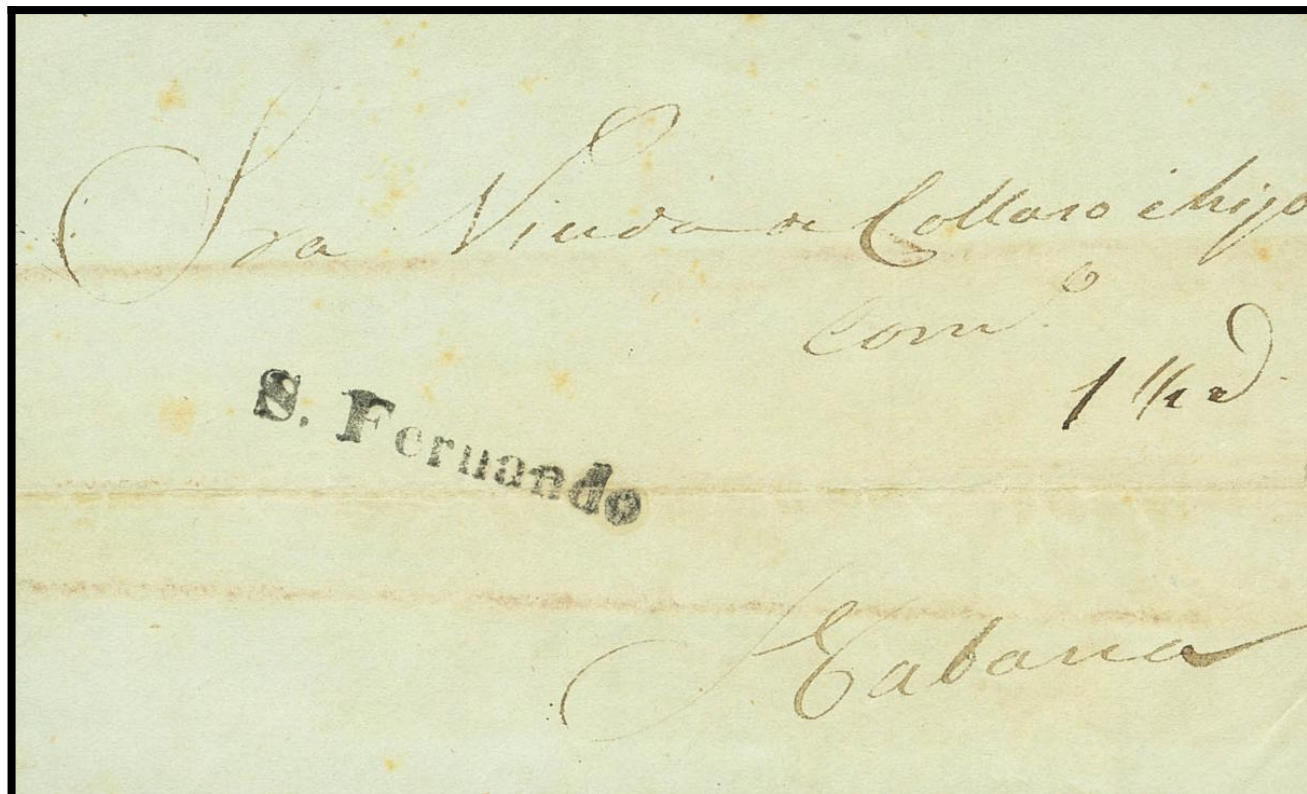 Sra Viuda de Collaso é hijo
Com.º
S. Fernando
Habana